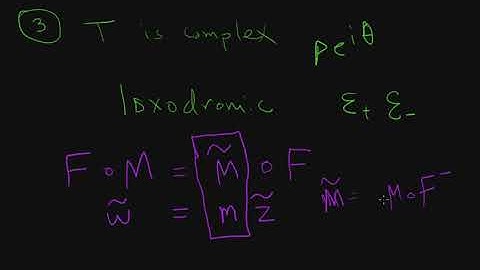 ③ T is complex ρe^{iθ}
Loxodromic ξ₊ ξ₋
F∘M = M̃∘F
w̃ = m z̃ M̃ = M∘F⁻